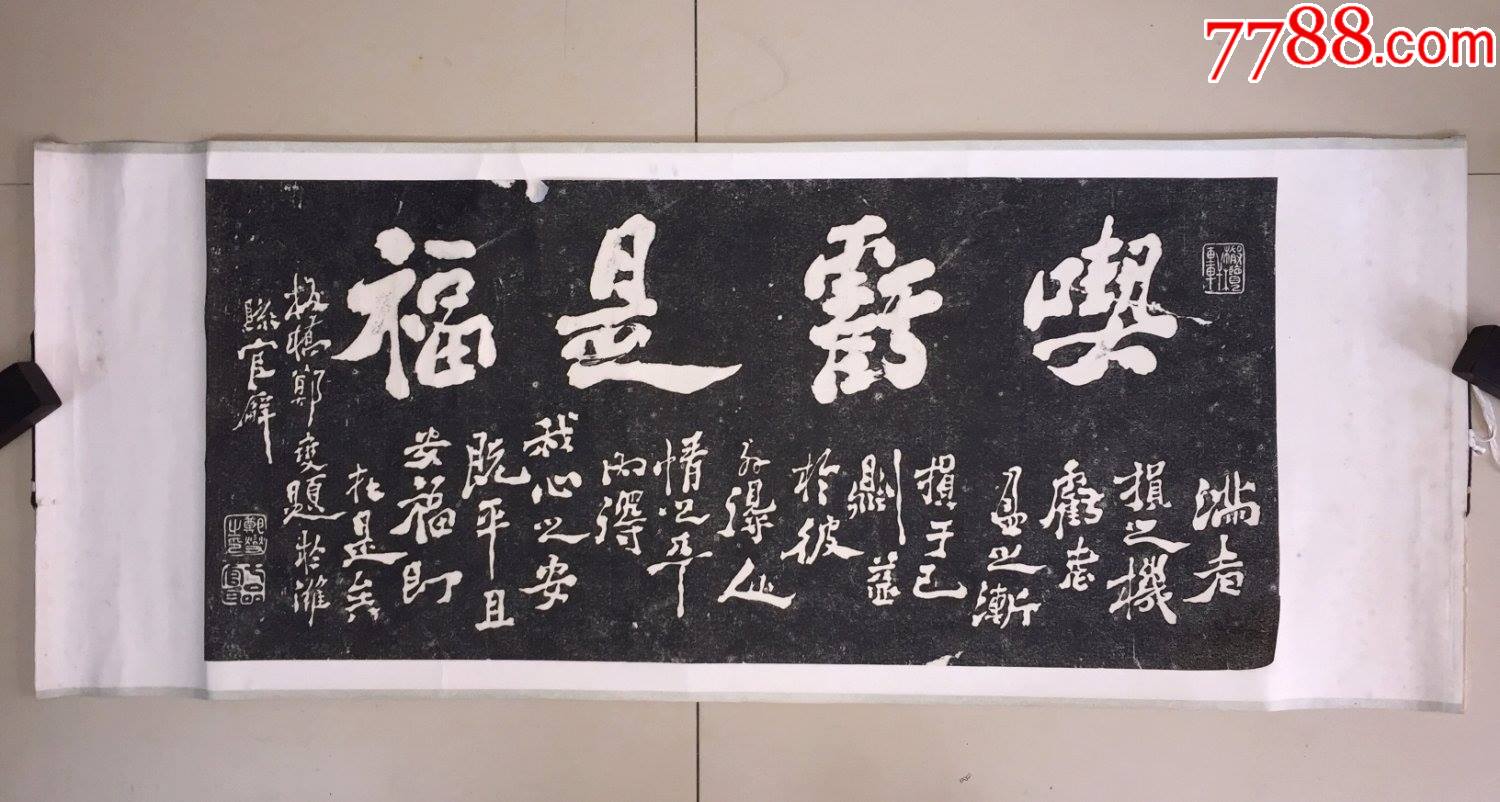 7788.com
橄欖軒
喫虧是福
滿者
損之機
虧者
盈之漸
損于己
則益
於彼
外得人
情之平
内得
我心之安
既平且
安福即
在是矣
板橋鄭燮題於濰
縣官廨
鄭燮之印